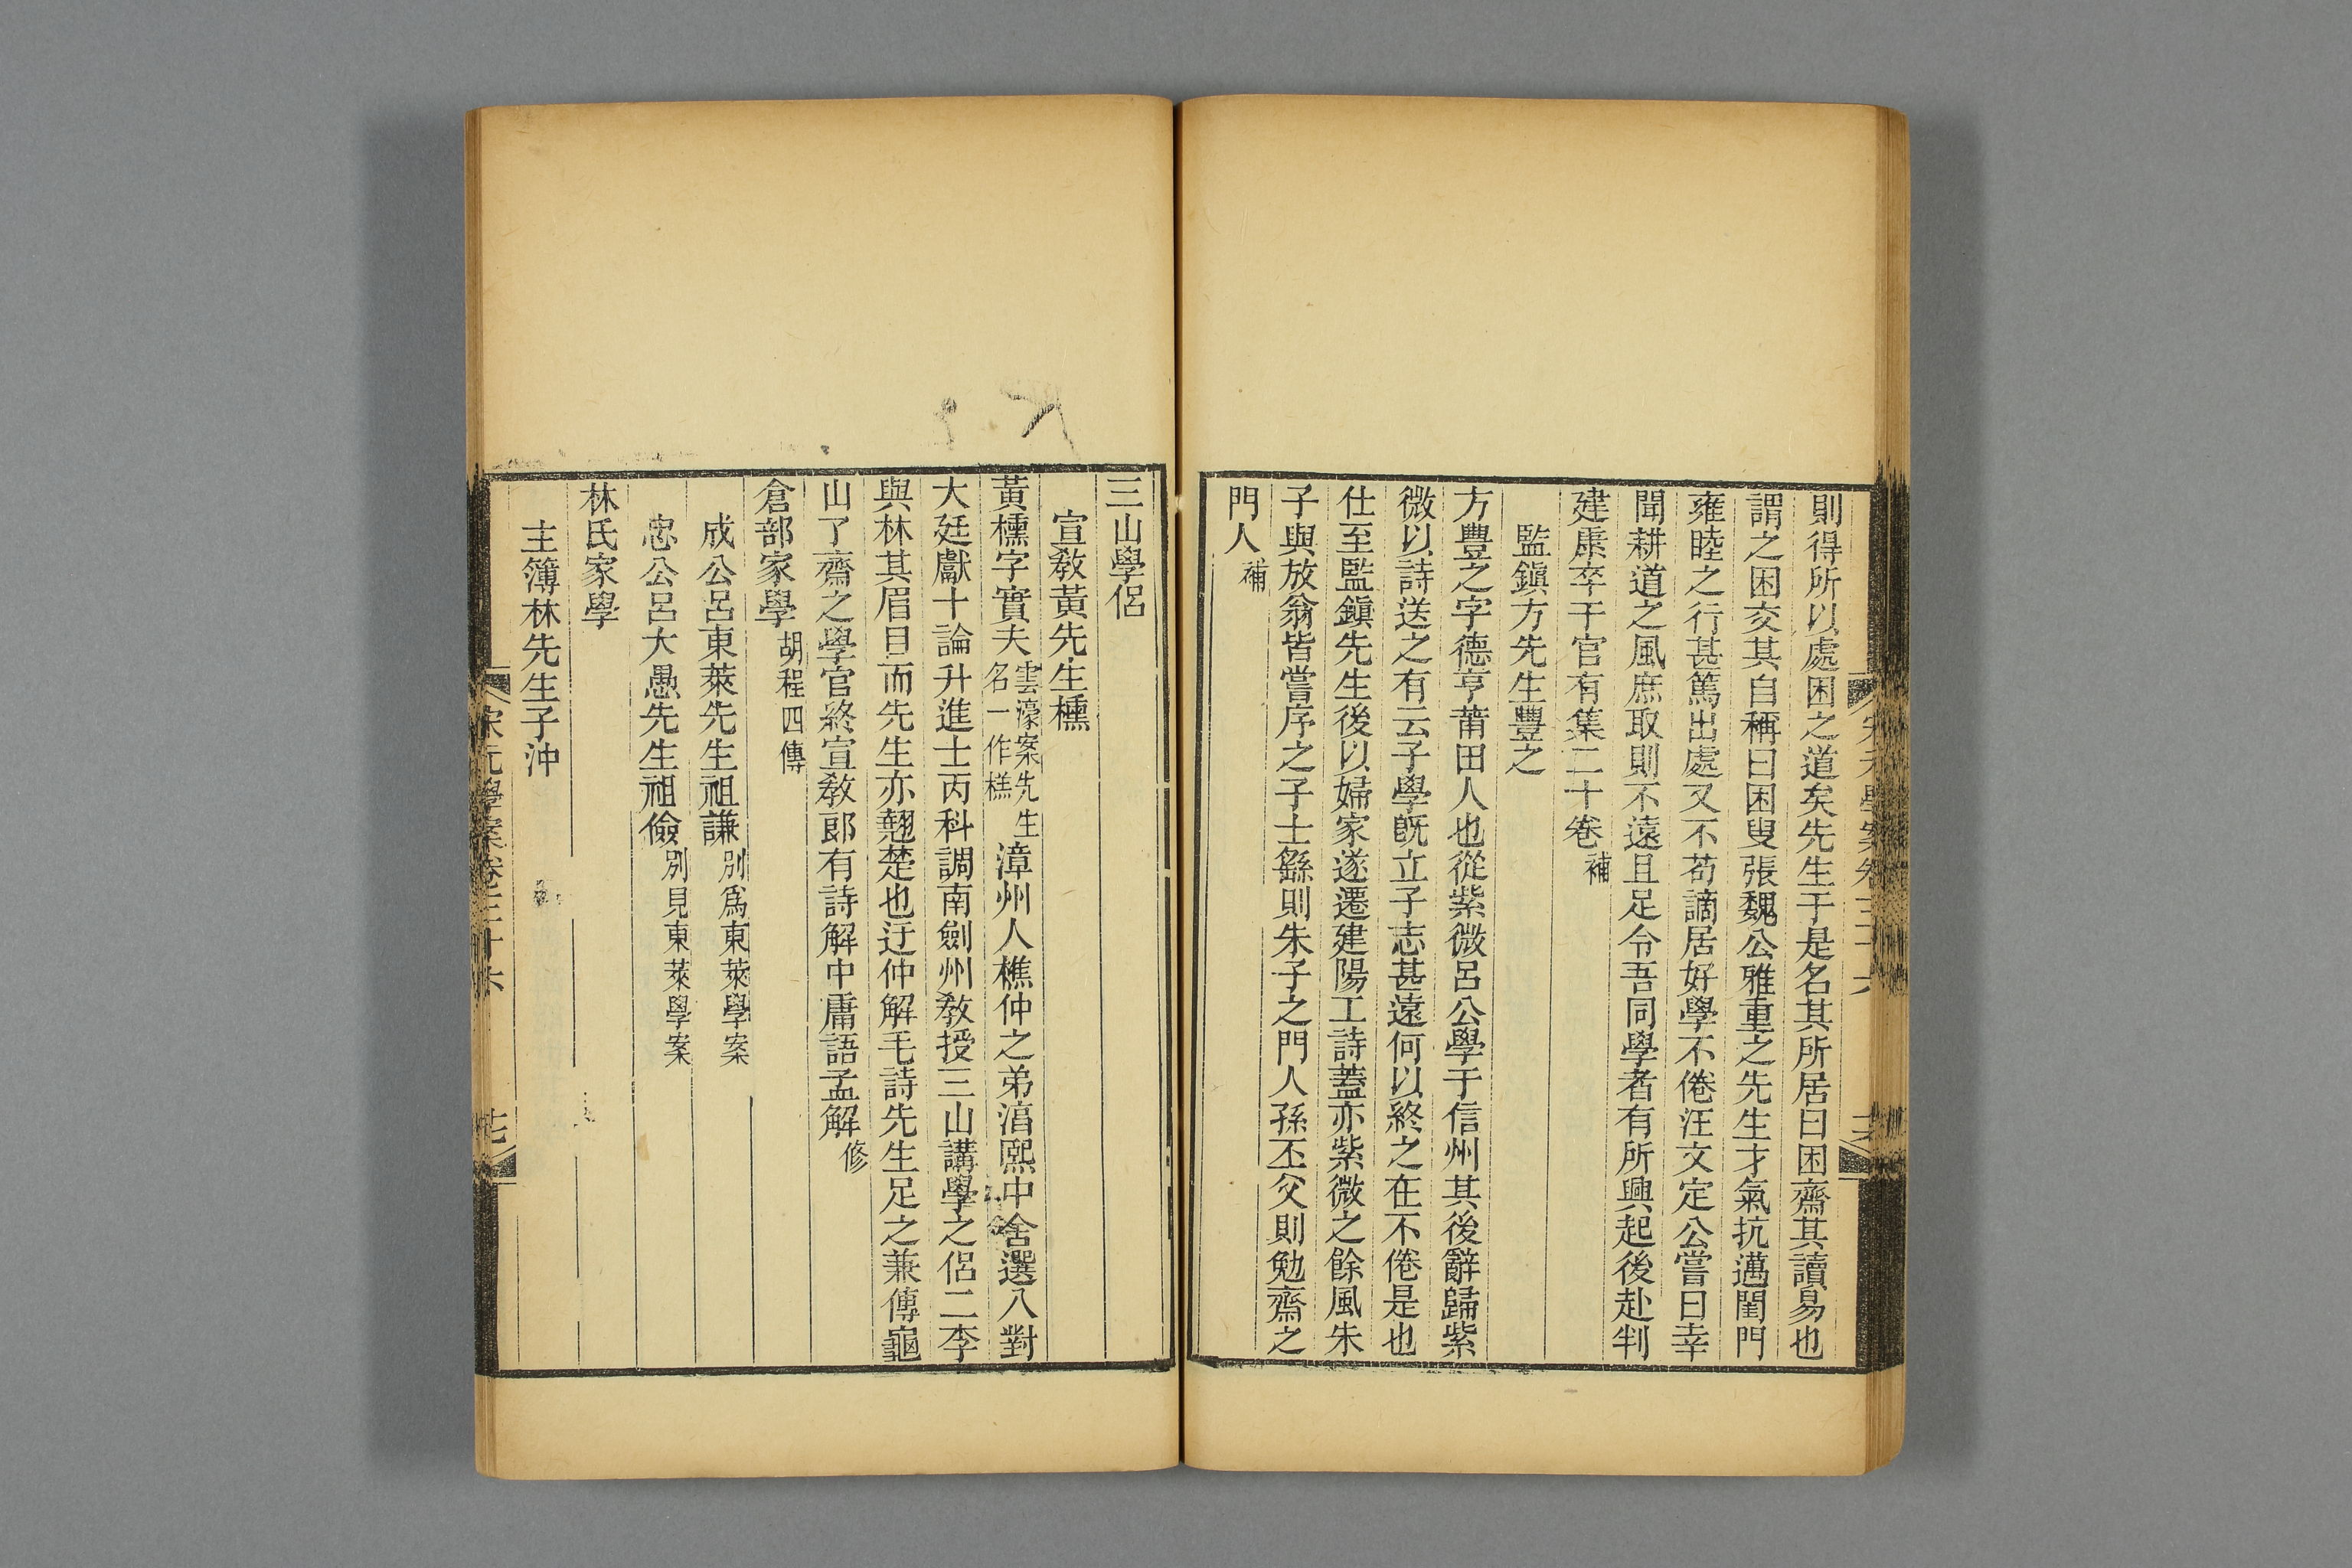 則得所以處困之道矣先生于是名其所居曰困齋其讀易也
謂之困交其自稱曰困叟張魏公雅重之先生才氣抗邁閨門
雍睦之行甚篤出處又不苟謫居好學不倦汪文定公嘗曰幸
聞耕道之風庶取則不遠且足令吾同學者有所興起後赴判
建康卒干官有集二十卷補
監鎭方先生豐之
方豐之字德亨莆田人也從紫微呂公學于信州其後辭歸紫
微以詩送之有云子學旣立子志甚遠何以終之在不倦是也
仕至監鎭先生後以婦家遂遷建陽工詩蓋亦紫微之餘風朱
子與放翁皆嘗序之子士繇則朱子之門人孫丕父則勉齋之
門人補
三山學侶
宣敎黃先生櫄
黃櫄字實夫雲濠案先生名一作樵漳州人樵仲之弟淯熙中舍選八對
大廷獻十論升進士丙科調南劍州敎授三山講學之侶二李
與林其眉目而先生亦翹楚也迂仲解毛詩先生足之兼傳龜
山了齋之學官終宣敎郎有詩解中庸語孟解修
倉部家學胡程四傳
成公呂東萊先生祖謙別爲東萊學案
忠公呂大愚先生祖儉別見東萊學案
林氏家學
主簿林先生子沖
宋元學案卷三十六